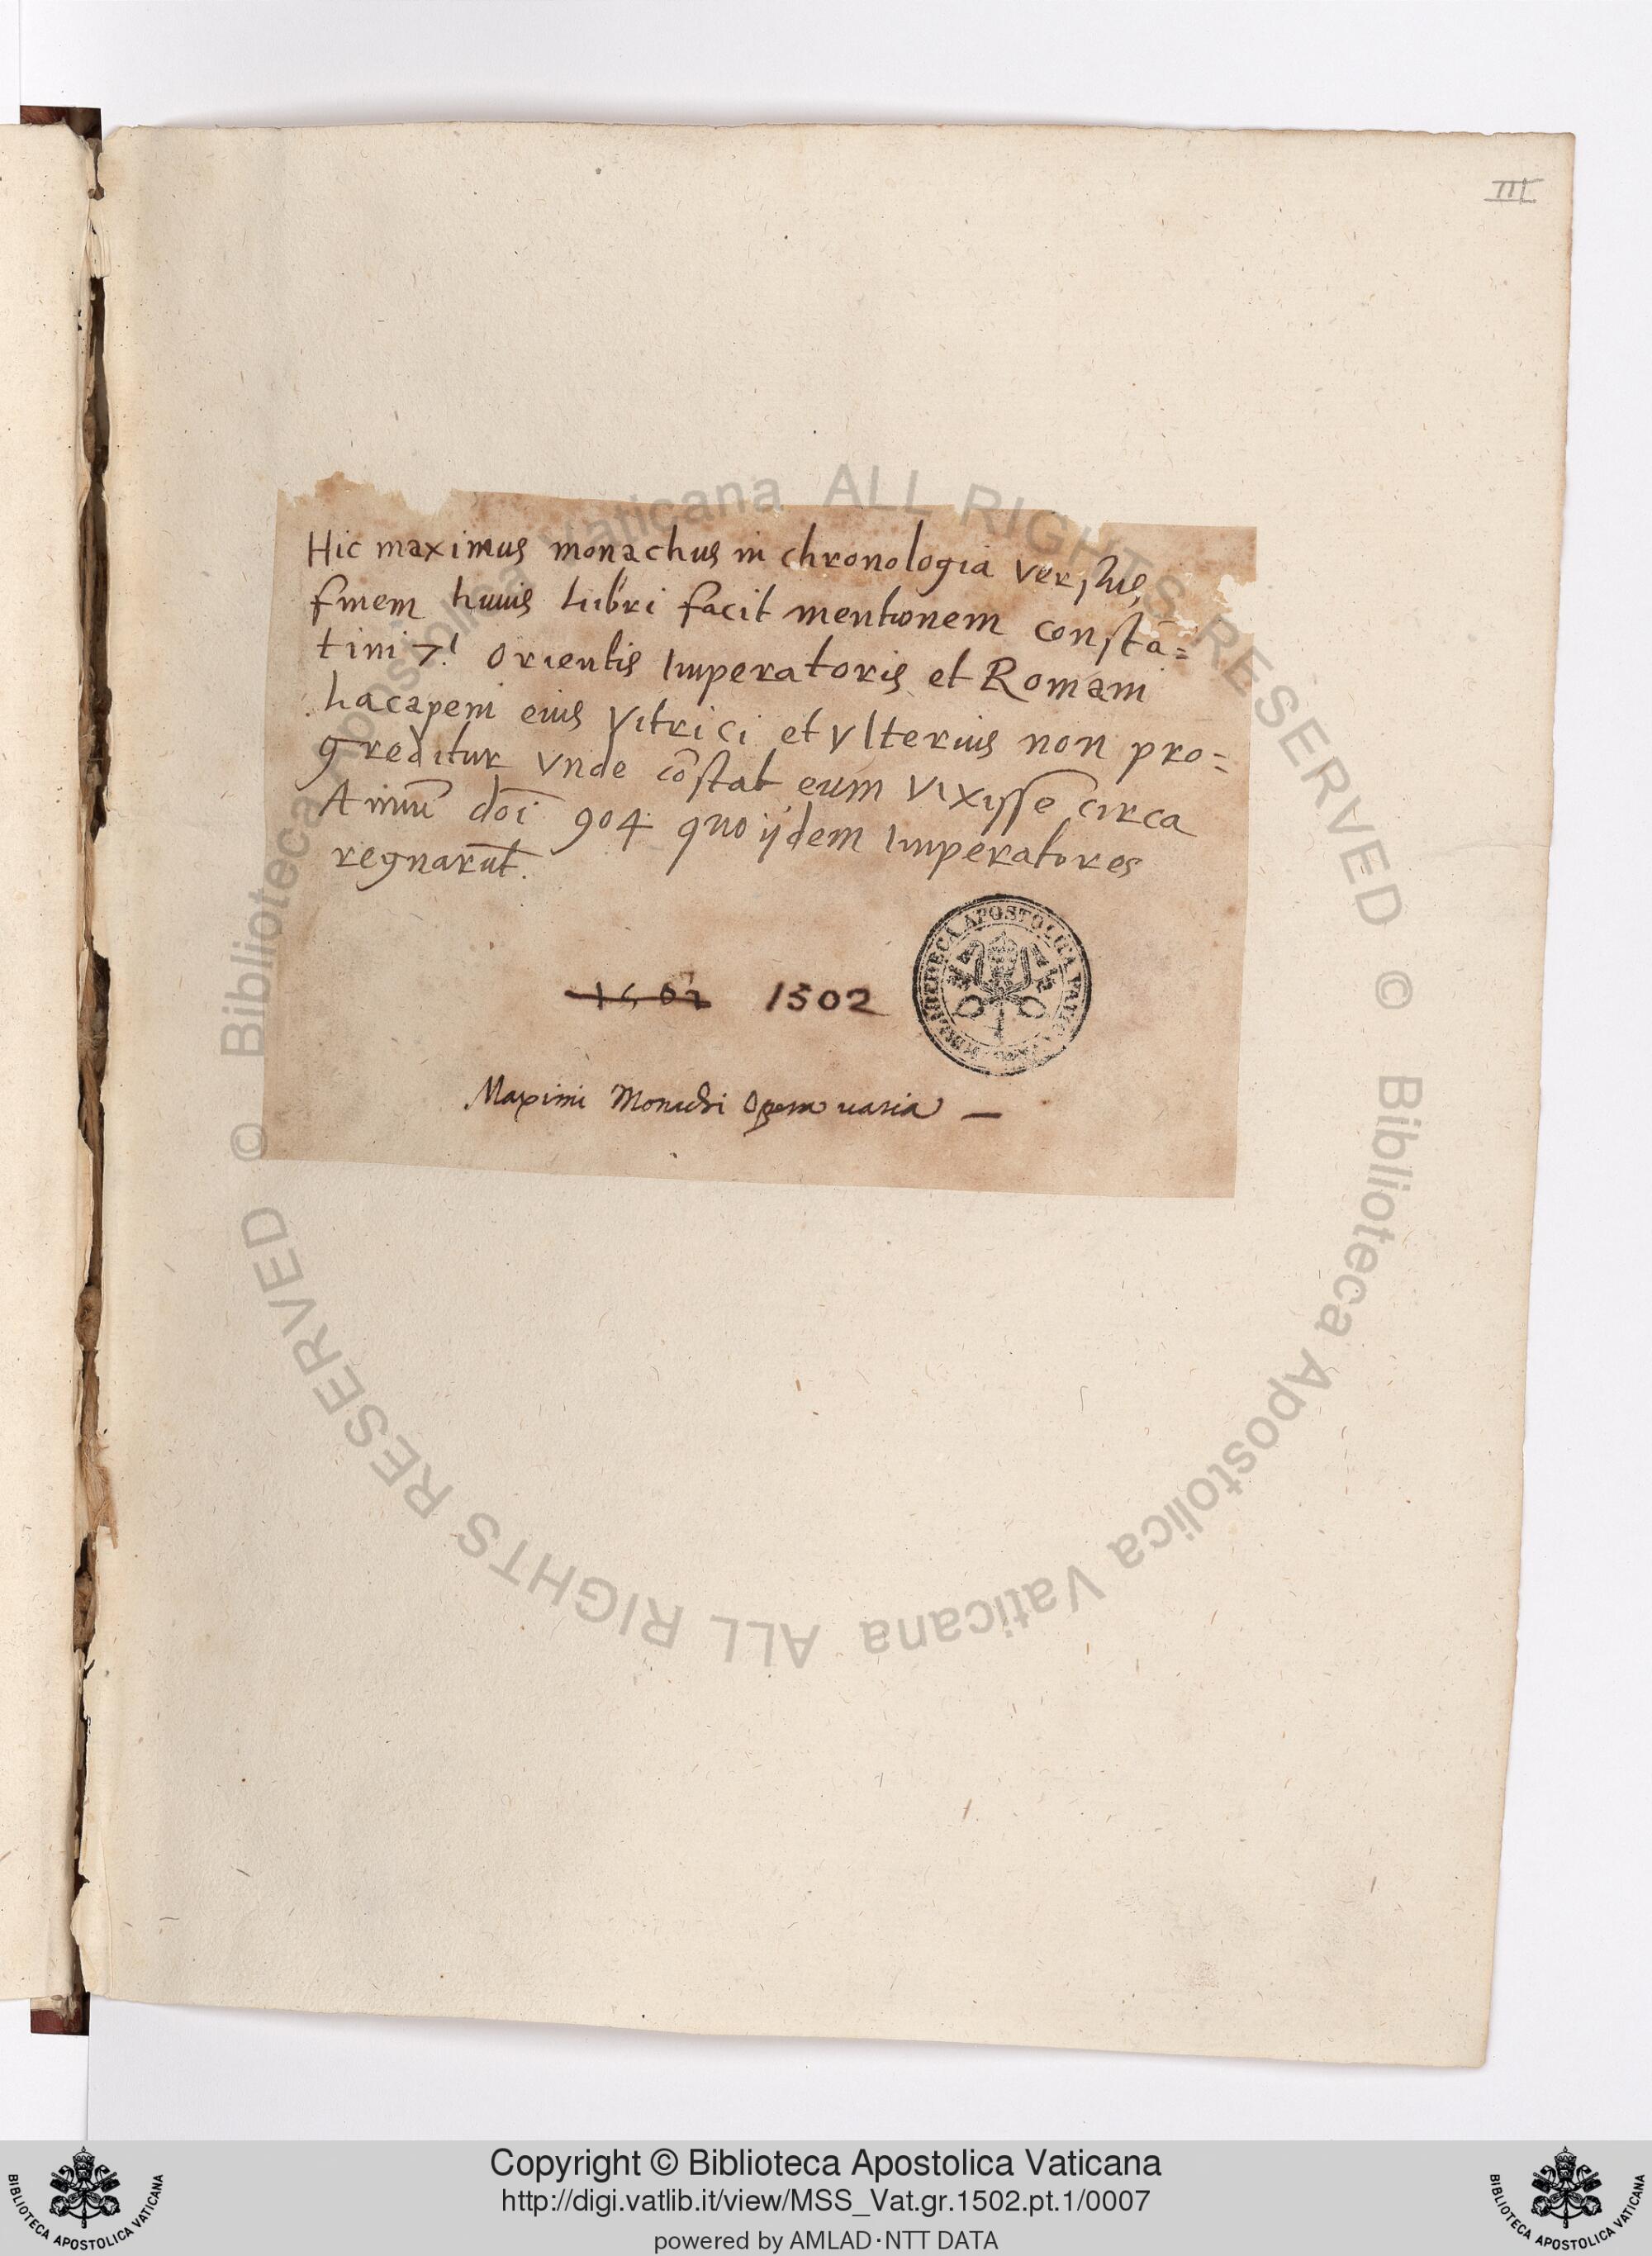 III
Hic maximus monachus in chronologia versus
finem huius libri facit mentionem constā=
tini 7.i orientis Imperatoris et Romani
hacapeni eius vitrici et vlterius non pro=
greditur vnde cōstat eum vixisse circa
Annū doī 904 quo ijdem Imperatores
regnarūt.
1502
Maximi Monachi Opera uaria —
Copyright © Biblioteca Apostolica Vaticana
http://digi.vatlib.it/view/MSS_Vat.gr.1502.pt.1/0007
powered by AMLAD·NTT DATA
BIBLIOTECA APOSTOLICA VATICANA
BIBLIOTECA APOSTOLICA VATICANA
© Biblioteca Apostolica Vaticana ALL RIGHTS RESERVED
© Biblioteca Apostolica Vaticana ALL RIGHTS RESERVED